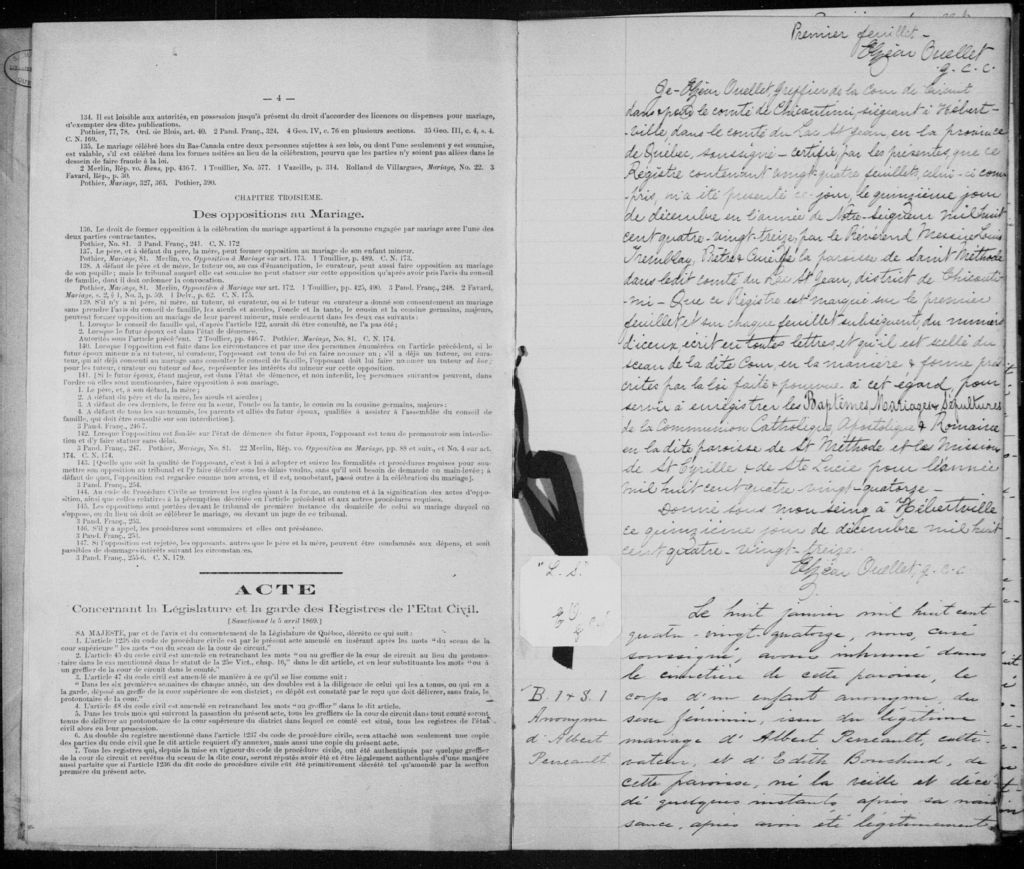 — 4 —
134. Il est loisible aux autorités, en possession jusqu'à présent du droit d'accorder des licences ou dispenses pour mariage,
d'exempter des dites publications.
Pothier, 77, 78. Ord. de Blois, art. 40. 2 Pand. Franç., 324. 4 Geo. IV, c. 76 en plusieurs sections. 35 Geo. III, c. 4, s. 4.
C. N. 169.
135. Le mariage célébré hors du Bas-Canada entre deux personnes sujettes à ses lois, ou dont l'une seulement y est soumise,
est valable, s'il est célébré dans les formes usitées au lieu de la célébration, pourvu que les parties n'y soient pas allées dans le
dessein de faire fraude à la loi.
2 Merlin, Rép. vo. Bans, pp. 436-7. 1 Touillier, No. 577. 1 Vazeille, p. 314. Rolland de Villargues, Mariage, No. 22. 3
Favard, Rép., p. 50.
Pothier, Mariage, 327, 363. Pothier, 390.
CHAPITRE TROISIEME.
Des oppositions au Mariage.
136. Le droit de former opposition à la célébration du mariage appartient à la personne engagée par mariage avec l'une des
deux parties contractantes.
Pothier, No. 81. 3 Pand. Franç., 241. C. N. 172
137. Le père, et à défaut du père, la mère, peut former opposition au mariage de son enfant mineur.
Pothier, Mariage, 81. Merlin, vo. Opposition à Mariage sur art. 173. 1 Touillier, p. 489. C. N. 173.
138. A défaut de père et de mère, le tuteur ou, au cas d'émancipation, le curateur, peut aussi faire opposition au mariage
de son pupille ; mais le tribunal auquel elle est soumise ne peut statuer sur cette opposition qu'après avoir pris l'avis du conseil
de famille, dont il doit ordonner la convocation.
Pothier, Mariage, 81. Merlin, Opposition à Mariage sur art. 172. 1 Touillier, pp. 425, 490. 3 Pand. Franç., 248. 2 Favard,
Mariage, s. 2, § 1, No. 3, p. 59. 1 Delv., p. 62. C. N. 175.
139. S'il n'y a ni père, ni mère, ni tuteur, ni curateur, ou si le tuteur ou curateur a donné son consentement au mariage
sans prendre l'avis du conseil de famille, les aieuls et aieules, l'oncle et la tante, le cousin et la cousine germains, majeurs,
peuvent former opposition au mariage de leur parent mineur, mais seulement dans les deux cas suivants :
1. Lorsque le conseil de famille qui, d'après l'article 122, aurait dû être consulté, ne l'a pas été ;
2. Lorsque le futur époux est dans l'état de démence.
Autorités sous l'article précédent. 2 Touillier, pp. 446-7. Pothier, Mariage, No. 81. C. N. 174.
140. Lorsque l'opposition est faite dans les circonstances et par une des personnes énumérées en l'article précédent, si le
futur époux mineur n'a ni tuteur, ni curateur, l'opposant est tenu de lui en faire nommer un ; s'il a déjà un tuteur, ou curateur,
qui ait déjà consenti au mariage sans consulter le conseil de famille, l'opposant doit lui faire nommer un tuteur ad hoc ;
pour les tuteur, curateur ou tuteur ad hoc, représenter les intérêts du mineur sur cette opposition.
141. [Si le futur époux, étant majeur, est dans l'état de démence, et non interdit, les personnes suivantes peuvent, dans
l'ordre où elles sont mentionnées, faire opposition à son mariage.
1. Le père, et, à son défaut, la mère ;
2. A défaut du père et de la mère, les aieuls et aieules ;
3. A défaut de ces derniers, le frère ou la sœur, l'oncle ou la tante, le cousin ou la cousine germains, majeurs ;
4. A défaut de tous les sus-nommés, les parents et alliés du futur époux, qualifiés à assister à l'assemblée du conseil de
famille, qui doit être consulté sur son interdiction].
3 Pand. Franç., 246-7.
142. Lorsque l'opposition est fondée sur l'état de démence du futur époux, l'opposant est tenu de promouvoir son interdiction
et d'y faire statuer sans délai.
3 Pand. Franç., 247. Pothier, Mariage, No. 81. 22 Merlin, Rép. vo. Opposition au Mariage, pp. 88 et suiv., et No. 4 sur art.
174. C. N. 174.
143. [Quelle que soit la qualité de l'opposant, c'est à lui à adopter et suivre les formalités et procédures requises pour soumettre
son opposition au tribunal et l'y faire décider sous les délais voulus, sans qu'il soit besoin de demande en main-levée ; à
défaut de quoi, l'opposition est regardée comme non avenu, et il est, nonobstant, passé outre à la célébration du mariage].
3 Pand. Franç., 254.
144. Au code de Procédure Civile se trouvent les règles quant à la forme, au contenu et à la signification des actes d'opposition,
ainsi que celles relatives à la péremption décrétée en l'article précédent et aux autres procédures requises.
145. Les oppositions sont portées devant le tribunal de première instance du domicile de celui au mariage duquel on
s'oppose, ou du lieu où doit se célébrer le mariage, ou devant un juge de ce tribunal.
3 Pand. Franç., 253.
146. S'il y a appel, les procédures sont sommaires et elles ont préséance.
3 Pand. Franç., 253.
147. Si l'opposition est rejetée, les opposants, autres que le père et la mère, peuvent être condamnés aux dépens, et sont
passibles de dommages-intérêts suivant les circonstances.
3 Pand. Franç., 255-6. C. N. 179.
ACTE
Concernant la Législature et la garde des Registres de l'Etat Civil.
[Sanctionné le 5 avril 1869.]
SA MAJESTE, par et de l'avis et du consentement de la Législature de Québec, décrète ce qui suit :
1. L'article 1236 du code de procédure civile est par le présent acte amendé en insérant après les mots "du sceau de la
cour supérieure" les mots "ou du sceau de la cour de circuit."
2. L'article 45 du code civil est amendé en retranchant les mots "ou au greffier de la cour de circuit au lieu du protonotaire
dans le cas mentionné dans le statut de la 25e Vict., chap. 16," dans le dit article, et en leur substituants les mots "ou à
un greffier de la cour de circuit dans le comté."
3. L'article 47 du code civil est amendé de manière à ce qu'il se lise comme suit :
"Dans les six premières semaines de chaque année, un des doubles est à la diligence de celui qui les a tenus, ou qui en a
la garde, déposé au greffe de la cour supérieure de son district ; ce dépôt est constaté par le reçu que doit délivrer, sans frais, le
protonotaire de la cour."
4. L'article 48 du code civil est amendé en retranchant les mots "ou greffier" dans le dit article.
5. Dans les trois mois qui suivront la passation du présent acte, tous les greffiers de la cour de circuit dans tout comté seront
tenus de délivrer au protonotaire de la cour supérieure du district dans lequel ce comté est situé, tous les registres de l'état
civil alors en leur possession.
6. Au double du registre mentionné dans l'article 1237 du code de procédure civile, sera attaché non seulement une copie
des parties du code civil que le dit article requiert d'y annexer, mais aussi une copie du présent acte.
7. Tous les registres qui, depuis la mise en vigueur du code de procédure civile, ont été authentiqués par quelque greffier
de la cour de circuit et revêtus du sceau de la dite cour, seront réputés avoir été et être légalement authentiqués d'une manière
aussi parfaite que si l'article 1236 du dit code de procédure civile eût été primitivement décrété tel qu'amendé par la section
première du présent acte.
Premier feuillet -
Elzéar Ouellet
g. c. c.
Je - Elzéar Ouellet, Greffier de la Cour de Circuit
dans & pour le comté de Chicoutimi, siégeant à Hébert-
ville dans le comté du Lac St Jean, en la province
de Québec, soussigné - certifie par les présentes que ce
Registre contenant vingt quatre feuillets, celui-ci com-
pris, m'a été présenté ce jour, le quinzième jour
de décembre en l'année de Notre-Seigneur mil huit
cent quatre-vingt-treize, par le Révérend Messire Louis
Tremblay, Prêtre & Curé de la paroisse de Saint Méthode
dans ledit comté du Lac St Jean, district de Chicouti-
mi - Que ce Registre est marqué sur le premier
feuillet et sur chaque feuillet subséquent, du numéro
d'iceux, écrit en toutes lettres, et qu'il est scellé du
sceau de la dite Cour, en la manière & forme pres-
crites par la loi faite & pourvue à cet égard, pour
servir à enregistrer les Baptêmes, Mariages & Sépultures
de la Communion Catholique, Apostolique & Romaine
en la dite paroisse de St Méthode et les Missions
de St Cyrille & de Ste Lucie pour l'année
mil huit cent quatre-vingt-quatorze -
Donné sous mon seing à Hébertville
ce quinzième jour de décembre mil huit
cent quatre-vingt-treize.
Elzéar Ouellet, g. c. c.
"L. S."
B. 1 & S. 1
Anonyme
d'Albert
Perreault.
Le huit janvier mil huit cent
quatre-vingt-quatorze, nous, curé
soussigné, avons inhumé dans
le cimetière de cette paroisse, le
corps d'un enfant anonyme du
sexe féminin, issu du légitime
mariage d'Albert Perreault, culti
vateur, et d'Edith Bouchard, de
cette paroisse, né la veille et décé
dé quelques instants après sa nais
sance, après avoir été légitimement